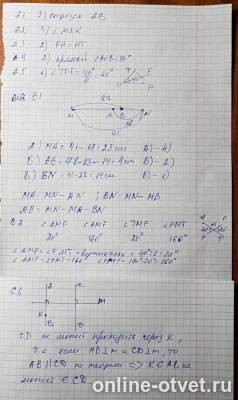 А1 3) отрезок АВ
А2 4) ∠MNK
А3 2) FH = HT
А4 2) прямой ∠ВОС = 90°
А5 4) ∠TOF = 40°/2 = 20°
T F O P 40°
В1
27
M A B N
18
41
А) MA = 41 - 18 = 23 см А) - 4)
Б) АВ = 41 - 23 - 14 = 4 см Б) - 2)
В) BN = 41 - 27 = 14 см В) - 1)
MA = MN - AN ; BN = MN - MB
AB = MN - MA - BN
В2 ∠AMP ∠AMF ∠TMF ∠PMT
20° 160° 20° 160°
∠AMP = ∠FMT - вертикальные = 40° : 2 = 20°
∠AMF = ∠PMT = 160° ∠PMT = 180° - 20° = 160°
С1
A C
m
K
B D
CD не может проходить через K,
т.к. если AB ⊥ m и CD ⊥ m, то
AB || CD по теореме => K ∈ AB, не
может ∈ CD
online-otvet.ru